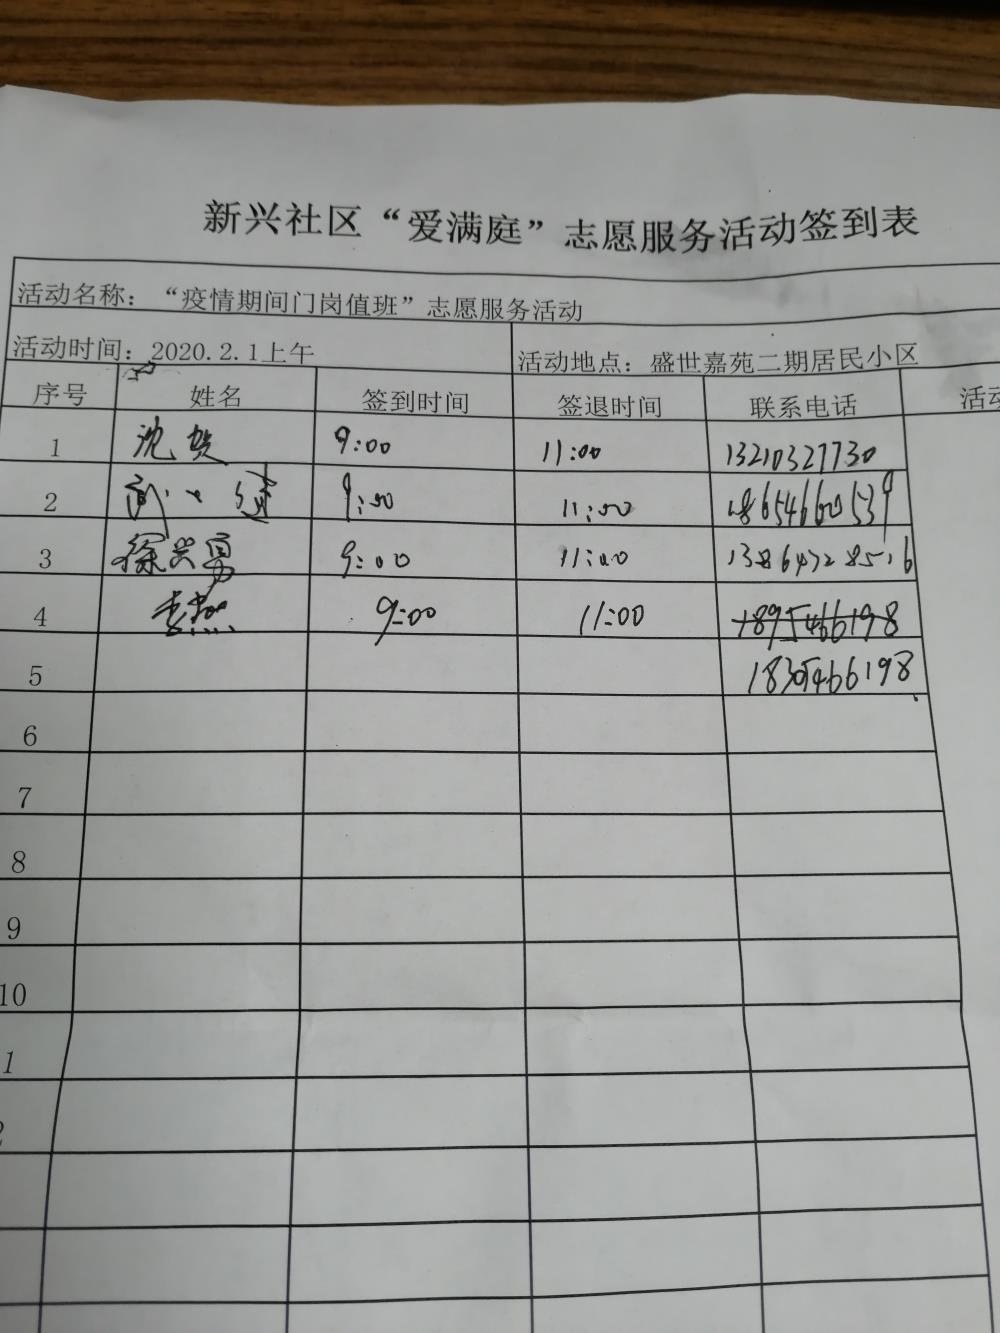 新兴社区“爱满庭”志愿服务活动签到表
活动名称：“疫情期间门岗值班”志愿服务活动
活动时间：2020.2.1上午 活动地点：盛世嘉苑二期居民小区
序号 姓名 签到时间 签退时间 联系电话 活动
1 沈贺 9:00 11:00 13210327730
2 9:00 11:00 18654660539
3 徐兴勇 9:00 11:00 13864728516
4 李燕 9:00 11:00 1895466198
5 18305466198
6
7
8
9
10
1
2